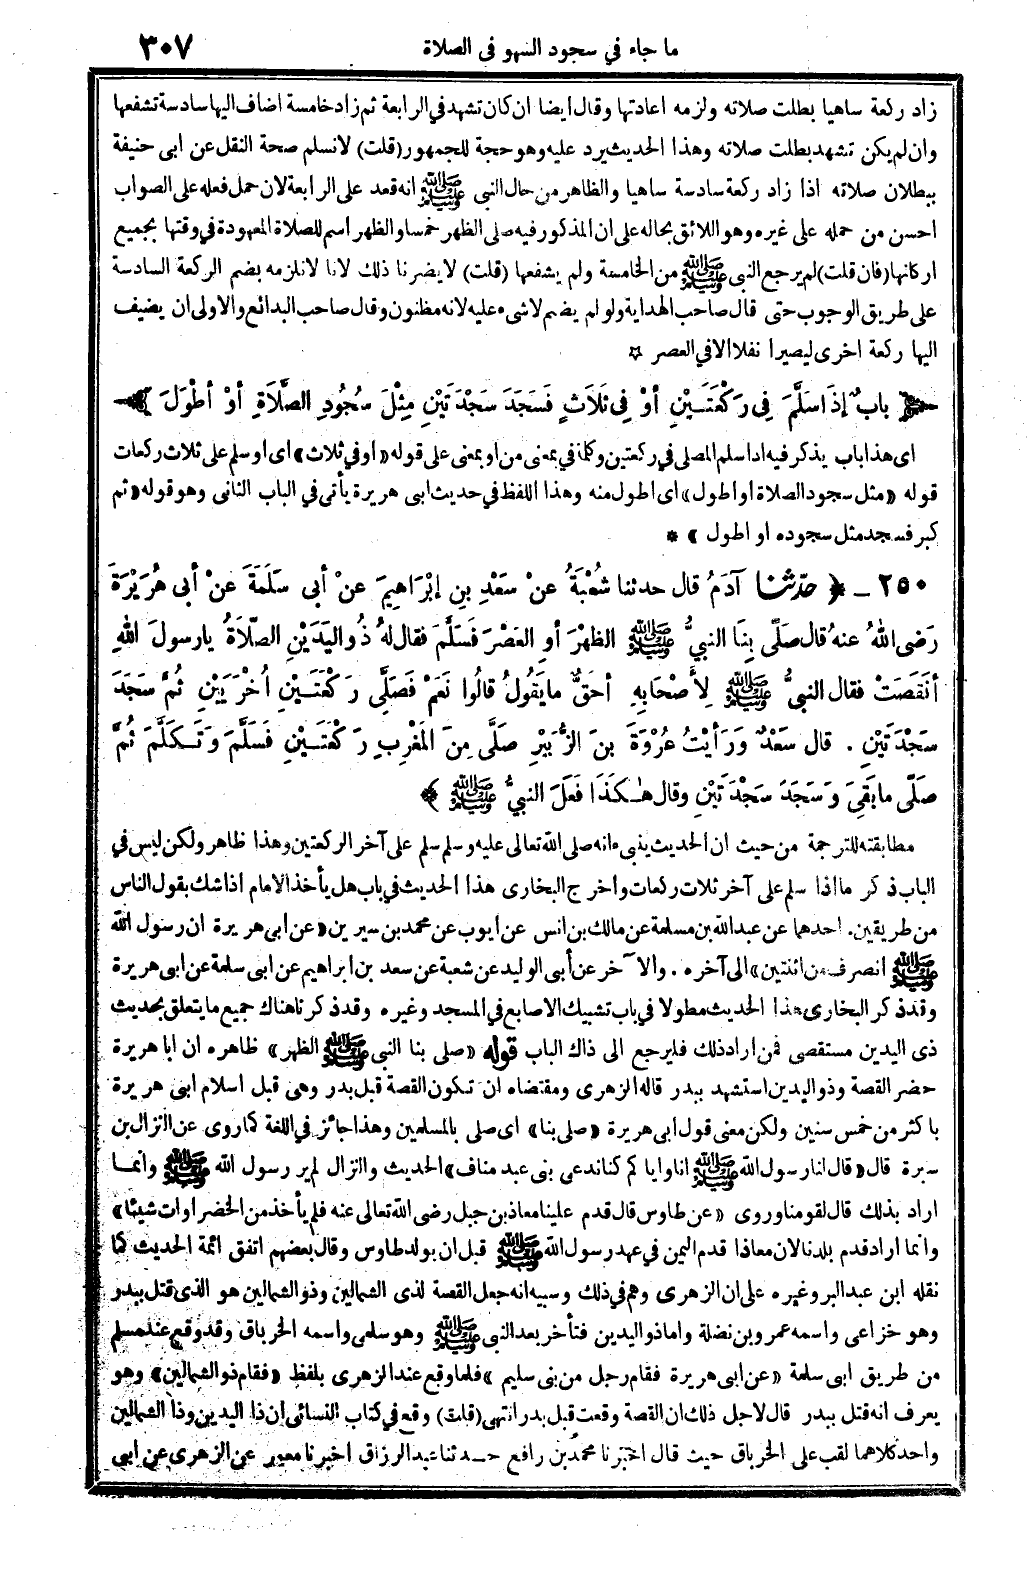 ما جاء في سجود السهو فى الصلاة ٣٠٧
زاد ركعة ساهيا بطلت صلاته ولزمه اعادتها وقال ايضا ان كان تشهد في الرابعة ثم زاد خامسة اضاف اليها سادسة تشفعها
وان لم يكن تشهد بطلت صلاته وهذا الحديث يرد عليه وهو حجة للجمهور (قلت) لا نسلم صحة النقل عن ابى حنيفة
ببطلان صلاته اذا زاد ركعة سادسة ساهيا والظاهر من حال النبى ﷺ انه قعد على الرابعة لان حمل فعله على الصواب
احسن من حمله على غيره وهو اللائق بحاله على ان المذكور فيه صلى الظهر خمسا والظهر اسم للصلاة المعهودة في وقتها بجميع
اركانها (فان قلت) لم يرجع النبى ﷺ من الخامسة ولم يشفعها (قلت) لا يضرنا ذلك لانا لا نلزمه بضم الركعة السادسة
على طريق الوجوب حتى قال صاحب الهداية ولو لم يضم لا شىء عليه لانه مظنون وقال صاحب البدائع والاولى ان يضيف
اليها ركعة اخرى ليصيرا نفلا الا في العصر ☆
﴿ بابٌ إذَا سَلَّمَ فِى رَكْعَتَيْنِ أوْ فِى ثَلاَثٍ فَسَجَدَ سَجْدَتَيْنِ مِثْلَ سُجُودِ الصَّلاَةِ أوْ أطْوَلَ ﴾
اى هذا باب يذكر فيه اذا سلم المصلى في ركعتين وكلمة في بمعنى من او بمعنى على قوله «او في ثلاث» اى او سلم على ثلاث ركعات
قوله «مثل سجود الصلاة او اطول» اى اطول منه وهذا اللفظ في حديث ابى هريرة يأتى في الباب الثانى وهو قوله «ثم
كبر فسجد مثل سجوده او اطول» *
٢٥٠ ـ ﴿ حَدَّثَنَا آدَمُ قال حدثنا شُعْبَةُ عنْ سَعْدِ بنِ إبْرَاهِيمَ عنْ أبى سَلَمَةَ عنْ أبى هُرَيْرَةَ
رَضى اللهُ عنهُ قال صَلَّى بِنَا النبىُّ ﷺ الظهْرَ أوِ العَصْرَ فَسَلَّمَ فقال لهُ ذُو اليَدَيْنِ الصَّلاَةُ يا رسولَ اللهِ
أنَقَصَتْ فقال النبىُّ ﷺ لِأصْحَابِهِ أحَقٌّ ما يَقُولُ قالُوا نَعَمْ فَصَلَّى رَكْعَتَيْنِ أُخْرَيَيْنِ ثُمَّ سَجَدَ
سَجْدَتَيْنِ . قال سَعْدٌ وَرَأيْتُ عُرْوَةَ بنَ الزُّبَيْرِ صَلَّى مِنَ المَغْرِبِ رَكْعَتَيْنِ فَسَلَّمَ وَتَكَلَّمَ ثُمَّ
صَلَّى ما بَقِىَ وَسَجَدَ سَجْدَتَيْنِ وقال هٰكَذَا فَعَلَ النبىُّ ﷺ ﴾
مطابقته للترجمة من حيث ان الحديث ينبىء انه صلى الله تعالى عليه وسلم سلم على آخر الركعتين وهذا ظاهر ولكن ليس في
الباب ذكر ما اذا سلم على آخر ثلاث ركعات واخرج البخارى هذا الحديث في باب هل يأخذ الامام اذا شك بقول الناس
من طريقين. احدهما عن عبدالله بن مسلمة عن مالك بن انس عن ايوب عن محمد بن سيرين «عن ابى هريرة ان رسول الله
ﷺ انصرف من اثنتين» الى آخره . والآخر عن أبى الوليد عن شعبة عن سعد بن ابراهيم عن ابى سلمة عن ابى هريرة
وقد ذكر البخارى هذا الحديث مطولا في باب تشبيك الاصابع في المسجد وغيره وقد ذكرنا هناك جميع ما يتعلق بحديث
ذى اليدين مستقصى فمن اراد ذلك فليرجع الى ذاك الباب قوله «صلى بنا النبى ﷺ الظهر» ظاهره ان ابا هريرة
حضر القصة وذو اليدين استشهد ببدر قاله الزهرى ومقتضاه ان تكون القصة قبل بدر وهى قبل اسلام ابى هريرة
باكثر من خمس سنين ولكن معنى قول ابى هريرة «صلى بنا» اى صلى بالمسلمين وهذا جائز في اللغة كما روى عن النزال بن
سبرة قال «قال لنا رسول الله ﷺ انا وايا كم كنا ندعى بنى عبد مناف» الحديث والنزال لم ير رسول الله ﷺ وانما
اراد بذلك قال لقومنا وروى «عن طاوس قال قدم علينا معاذ بن جبل رضى الله تعالى عنه فلم يأخذ من الخضراوات شيئا»
وانما اراد قدم بلدنا لان معاذا قدم اليمن في عهد رسول الله ﷺ قبل ان يولد طاوس وقال بعضهم اتفق ائمة الحديث كما
نقله ابن عبد البر وغيره على ان الزهرى وهم في ذلك وسببه انه جعل القصة لذى الشمالين وذو الشمالين هو الذى قتل ببدر
وهو خزاعى واسمه عمرو بن نضلة واما ذو اليدين فتأخر بعد النبى ﷺ وهو سلمى واسمه الخرباق وقد وقع عند مسلم
من طريق ابى سلمة «عن ابى هريرة فقام رجل من بنى سليم» فلما وقع عند الزهرى بلفظ «فقام ذو الشمالين» وهو
يعرف انه قتل ببدر قال لاجل ذلك ان القصة وقعت قبل بدر انتهى (قلت) وقع في كتاب النسائى ان ذا اليدين وذا الشمالين
واحد كلاهما لقب على الخرباق حيث قال اخبرنا محمد بن رافع حدثنا عبد الرزاق اخبرنا معمر عن الزهرى عن ابى